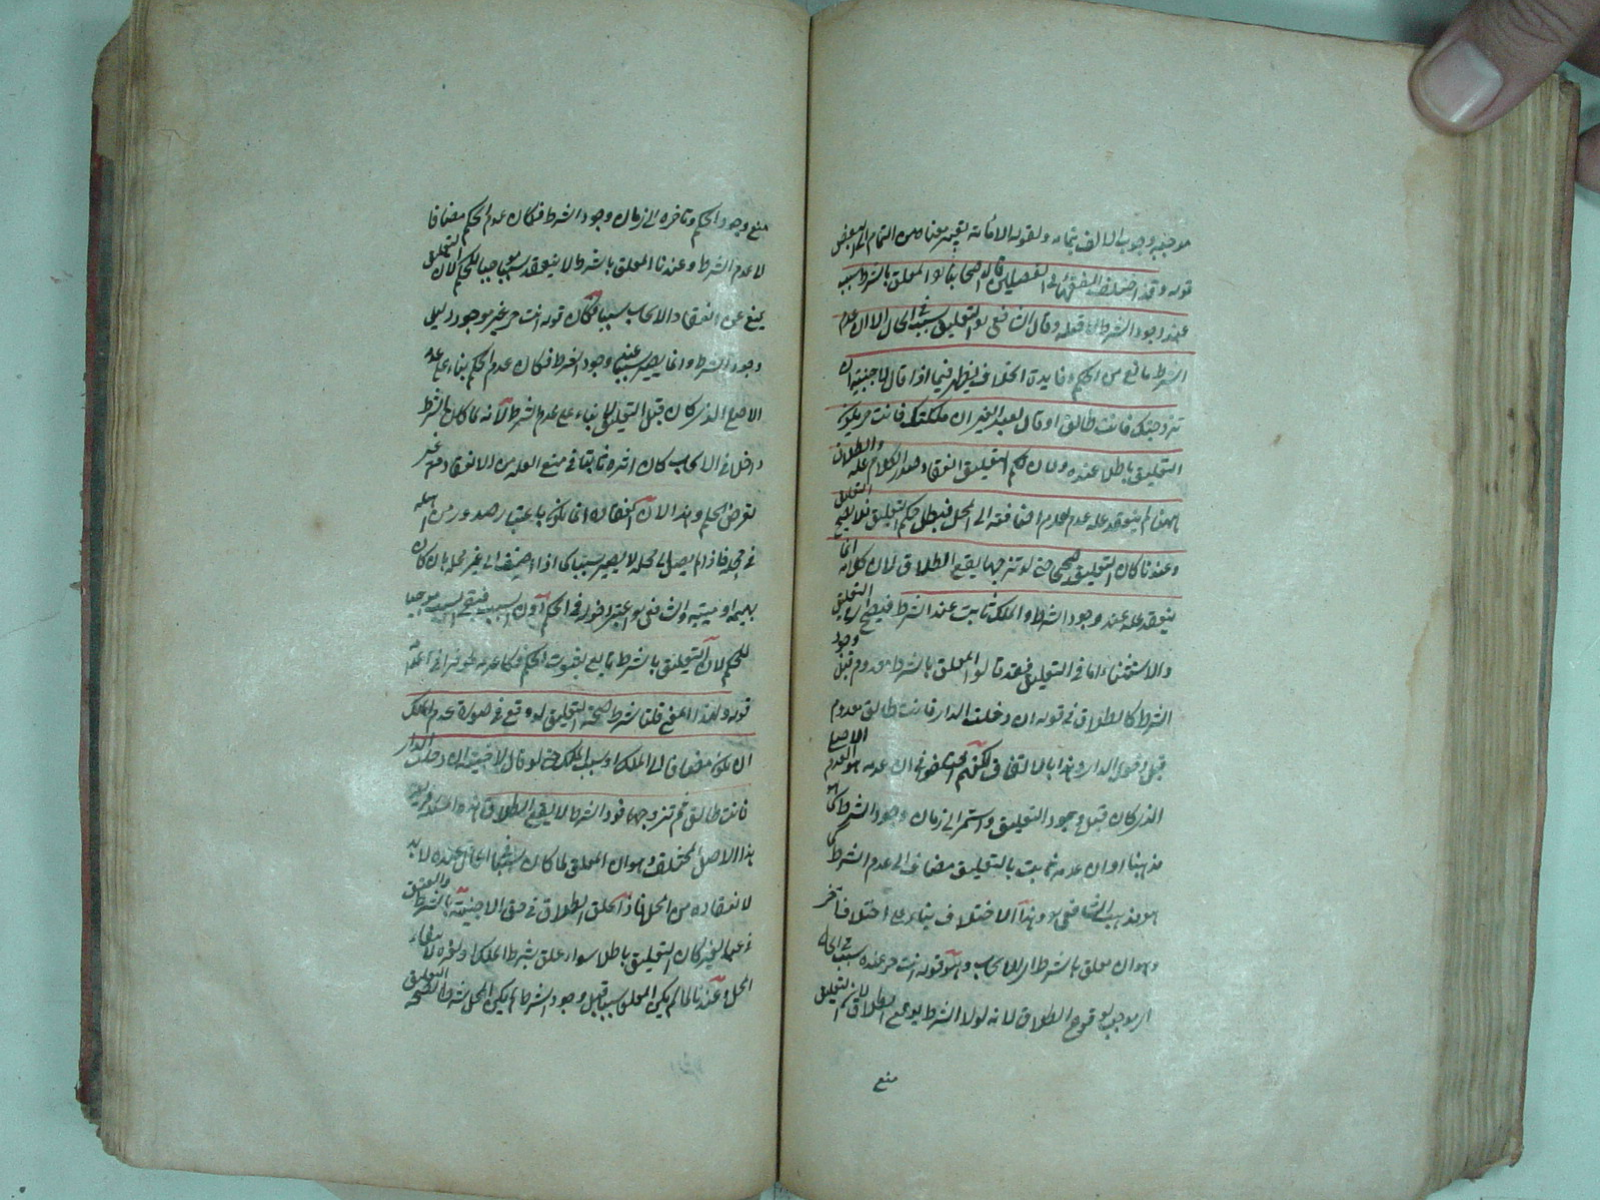 موجبه وجوب الالف بتمامه ولقوله الا مائة تغيير معناه من التمام الى البعض
قوله وقد اختلف الفقهاء في الفصلين قال اصحابنا المعلق بالشرط سبب
عند وجود الشرط لا قبله وقال الشافعي التعليق سبب في الحال الا ان عدم
الشرط مانع من الحكم وفائدة الخلاف يظهر فيما اذا قال لاجنبية ان
تزوجتك فانت طالق او قال لعبد الغير ان ملكتك فانت حر يكون
التعليق باطلا عنده لان حكم التعليق انعقاد صدر الكلام علة والطلاق
ههنا لم ينعقد علة لعدم اضافته الى المحل فبطل حكم التعليق فلا يصح التعليق
وعندنا كان التعليق صحيحا حتى لو تزوجها يقع الطلاق لان كلامه انما
ينعقد علة عند وجود الشرط والملك ثابت عند الشرط فيصح التعليق
والاستثناء اما في التعليق فعندنا المعلق بالشرط معدوم قبل وجود
الشرط كالطلاق في قوله ان دخلت الدار فانت طالق معدوم
قبل دخول الدار وهذا بالاتفاق لكنهم اختلفوا في ان عدمه هو العدم الاصلي
الذي كان قبل وجود التعليق واستمر الى زمان وجود الشرط كما هو
مذهبنا او ان عدمه ثبت بالتعليق مضاف الى عدم الشرط كما
هو مذهب الشافعي وهذا الاختلاف بناء على اختلاف آخر
وهو ان معلق بالشرط اي الايجاب وهو قوله انت حر عنده سبب في الحال
اي موجب لوقوع الطلاق لانه لولا الشرط يوقع الطلاق لان التعليق
منع
منع وجود الحكم وتاخره الى زمان وجود الشرط فكان عدم الحكم مضافا
لا عدم الشرط وعندنا المعلق بالشرط لا ينعقد سببا موجبا للحكم لان التعليق
يمنع عن انعقاد الايجاب سببا فكان قوله انت حر غير موجود قبل
وجود الشرط وانما يصير سببا عند وجود الشرط فكان عدم الحكم بناء على عدمه
الاصلي الذي كان قبل التعليق لا بناء على عدم الشرط لانه لما كان الشرط
داخلا في الايجاب كان اثره ثابتا في منع العلة من الانعقاد مع غير
تعرض للحكم وهذا لان انعقاده انما يكون باعتبار صدوره من اهله
في محله فاذا لم يصل الى محله لا يصير سببا كما اذا اضيف الى غير محله بان كان
بهيمة او ميتة والشافعي اعتبر اثره في الحكم دون السبب فبقي السبب موجبا
للحكم لان التعليق بالشرط مانع
قوله ولهذا المعنى قلنا شرط صحة التعليق لوقوع في صورة عدم الملك
ان يكون مضافا الى الملك او سبب الملك حتى لو قال لاجنبية ان دخلت الدار
فانت طالق ثم تزوجها فوجد الشرط لا يقع الطلاق
هذا الاصل المختلف وهو ان المعلق لما كان سببا في الحال عنده لا بد
لانعقاده من المحل فاذا علق الطلاق في حق الاجنبية بالشرط والعتق
في عبد الغير كان التعليق باطلا سواء علق بشرط الملك او غيره لانتفاء
المحل وعندنا لما لم يكن المعلق سببا قبل وجود الشرط لم يكن المحل شرطا لصحة التعليق